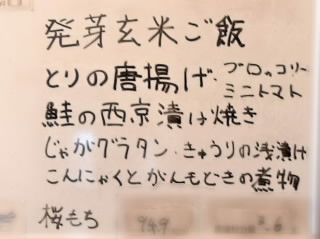 発芽玄米ご飯
とりの唐揚げ・ブロッコリー
ミニトマト
鮭の西京漬け焼き
じゃがグラタン・きゅうりの浅漬け
こんにゃくとがんもどきの煮物
桜もち